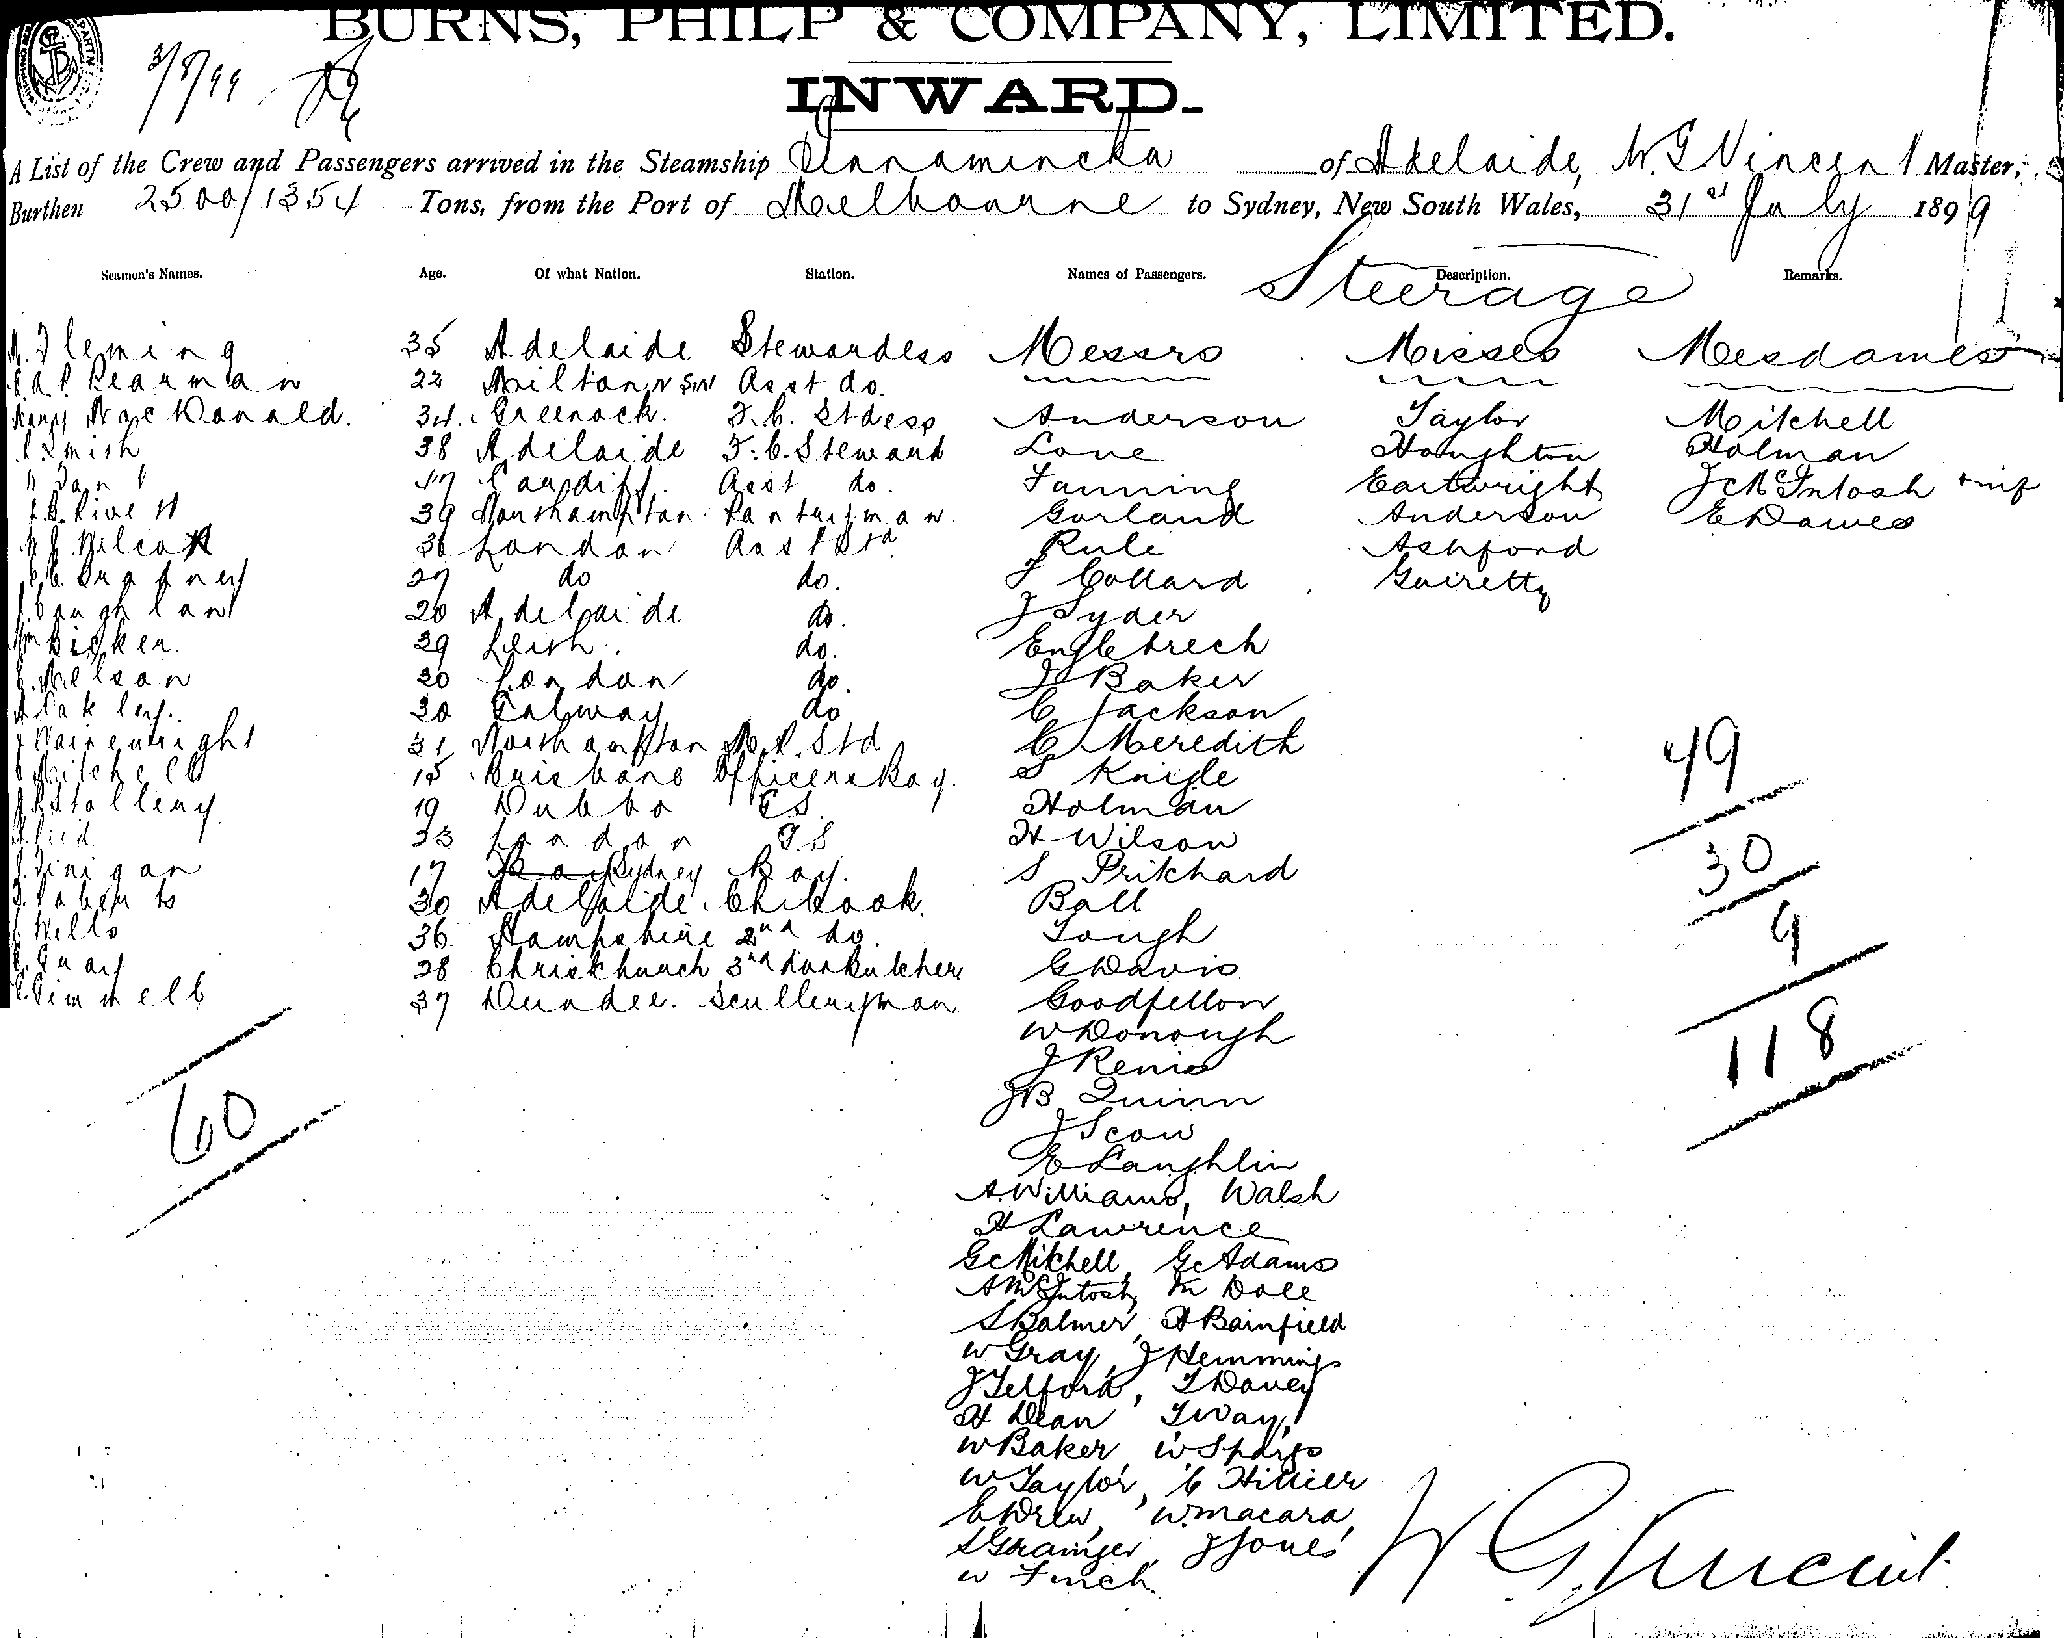 BURNS, PHILP & COMPANY, LIMITED.
3/8/99
INWARD.
A List of the Crew and Passengers arrived in the Steamship Innamincka of Adelaide, W. G Vincent Master,
Burthen 2500/1354 Tons, from the Port of Melbourne to Sydney, New South Wales, 31st July 1899
Seamen's Names. Age. Of what Nation. Station. Names of Passengers. Description. Remarks.
Steerage
Fleming 35 Adelaide Stewardess Messrs Misses Mesdames
Pearman 22 Milton N SW Asst do.
MacDonald. 34. Greenock. F.C. Stdess Anderson Taylor Mitchell
Smith 38 Adelaide F.C. Steward Lone Houghton Holman
47 Cardiff. Asst do. Fanning Cartwright J McIntosh + inf
39 Northampton Pantryman Garland Anderson E Dawes
Wilcox 36 London Asst Std Rule Ashford
27 do do. F Collard Guiretty
Coughlan 20 Adelaide do. J Syder
Bicker. 29 Leith. do. Englebrech
Nelson 20 London do. J Baker
Oakley. 30 Galway do C Jackson
Wainwright 31 Northampton M.R. Std C Meredith
Mitchell 15 Brisbane Officers Boy. S Knigle
Stallery 19 Dubbo GS. Holman
33 London GS H Wilson
Finigan 17 Sydney Boy. S Pritchard
Roberts 30 Adelaide. Ch. Cook. Ball
Wells 36 Hampshire 2nd do. Tough
Gray 28 Christchurch 3rd do & Butcher G Davis
Kimmell 37 Dundee. Sculleryman Goodfellow
W Donough
J Renie
JB Quinn
J Scow
E Laughlin
A. Williams, Walsh
H Lawrence
G Mitchell, G Adams
A McIntosh, M Dole
S Balmer, H Bainfield
W Gray, J Hemmings
J Telford, T Davey
H Dean, T Way,
W Baker, W Spargo
W Taylor, C Hillier
E Drew, W. Macara,
S Grainger, J Jones
W Finch
49
30
9
118
60
W G Vincent